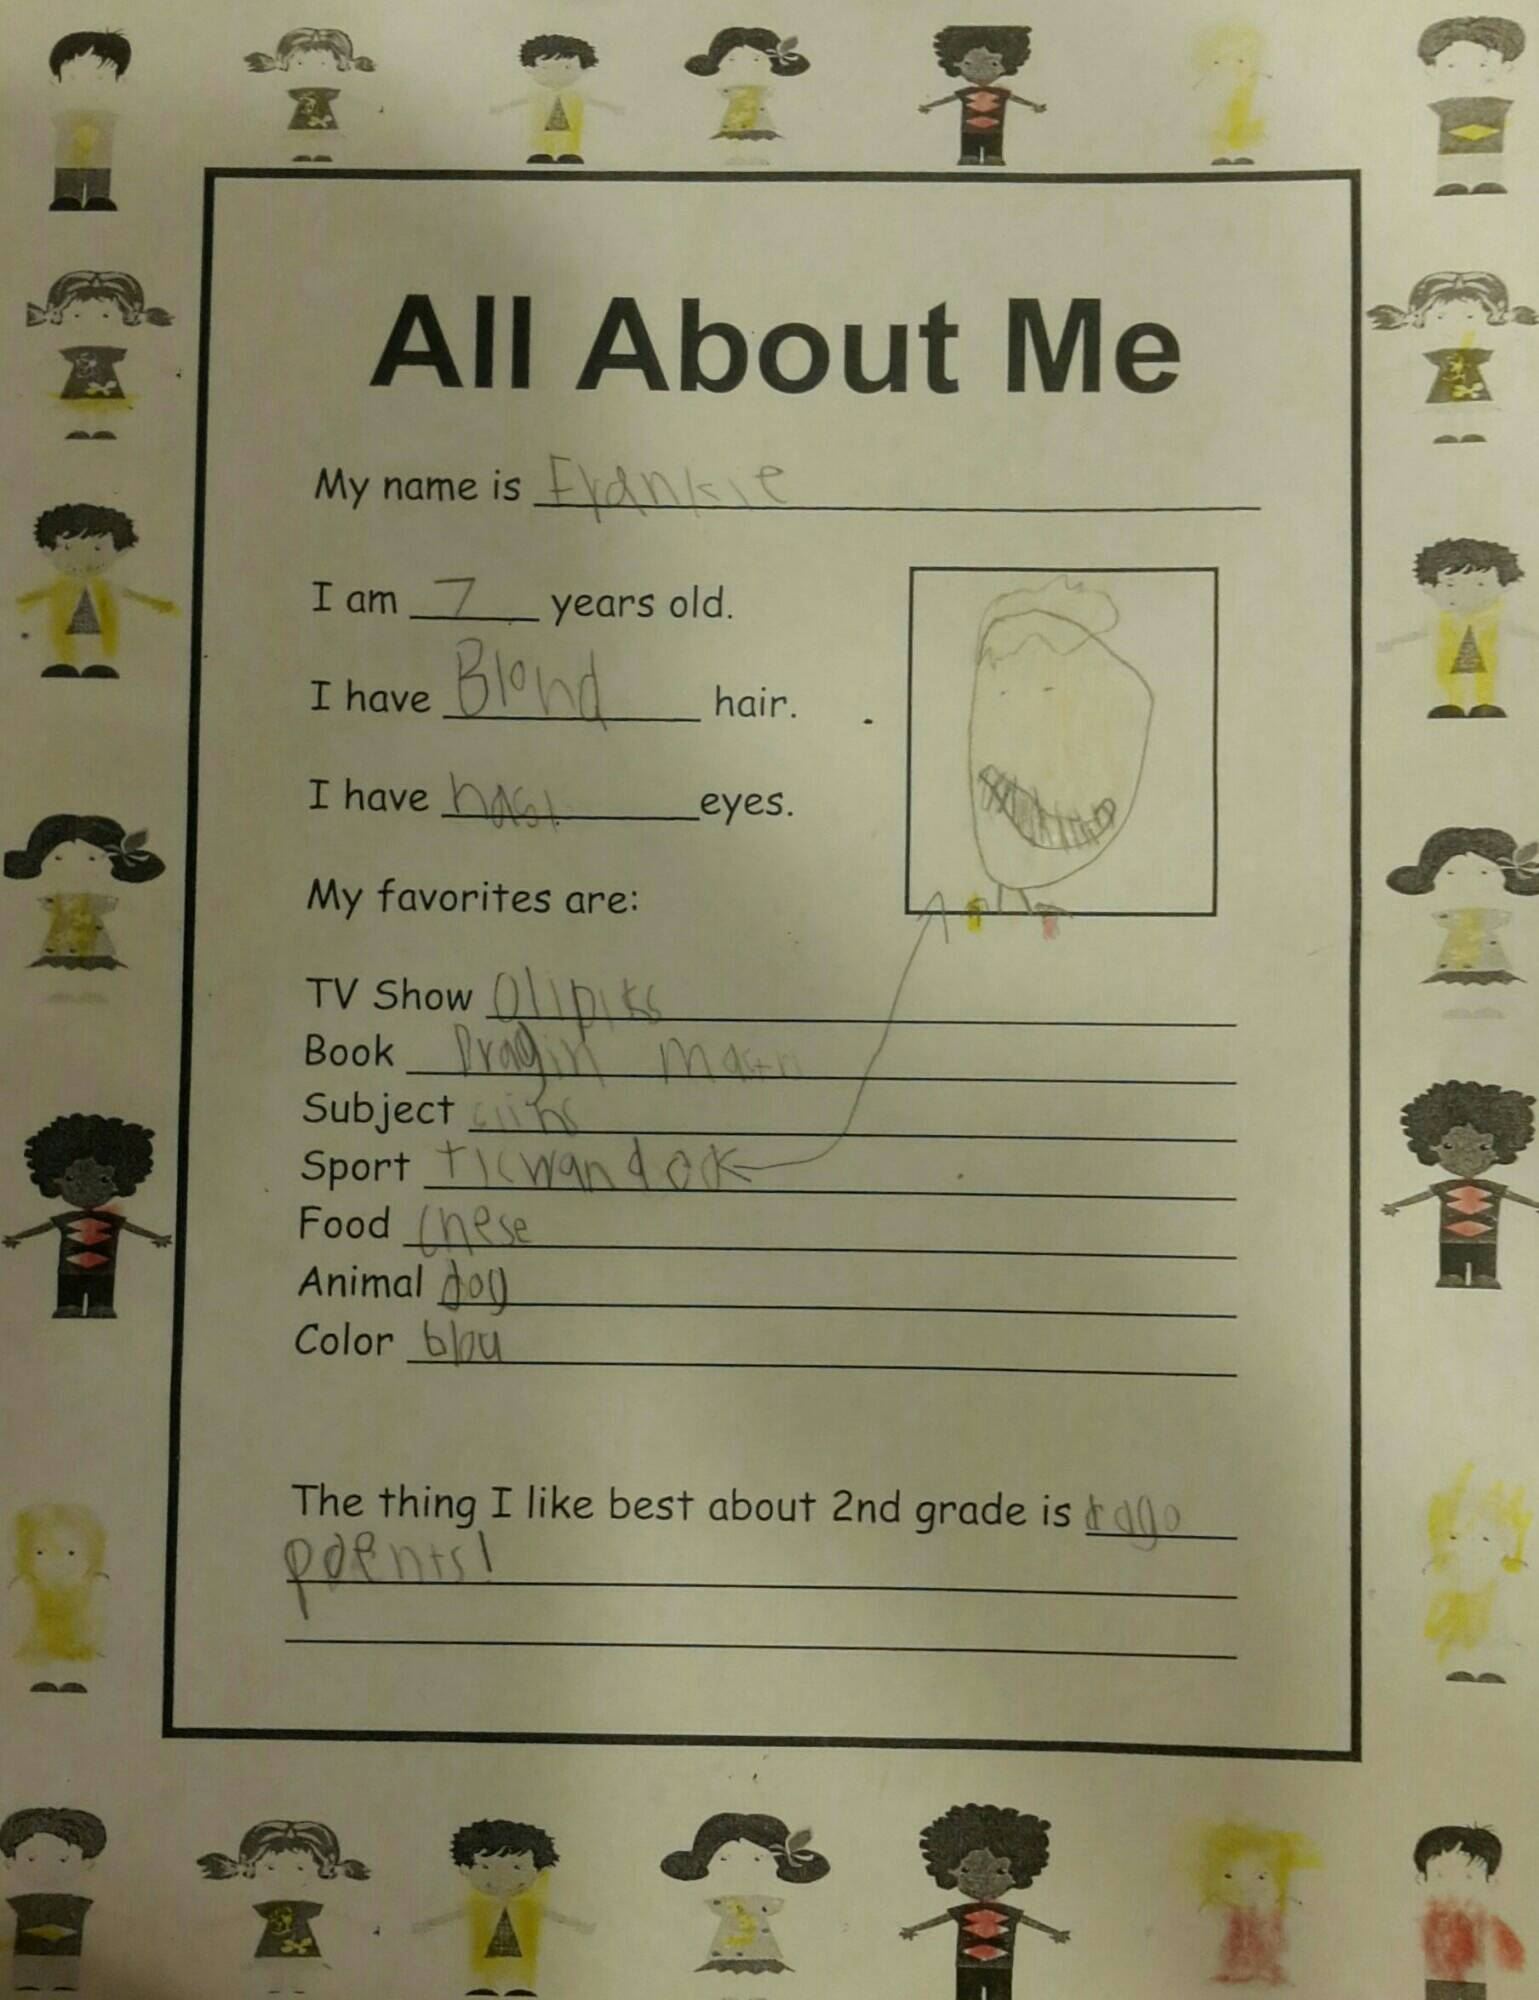 All About Me
My name is Frankie
I am 7 years old.
I have Blond hair.
I have hasl eyes.
My favorites are:
TV Show Olipiks
Book Dragin
Subject
Sport ticwandok
Food chese
Animal dog
Color blu
The thing I like best about 2nd grade is
poents!